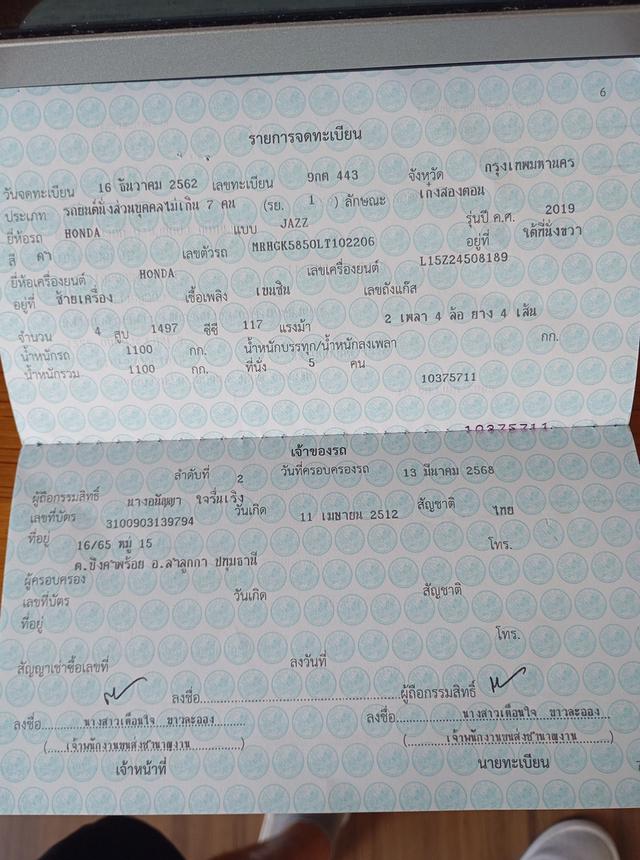 6
รายการจดทะเบียน
วันจดทะเบียน 16 ธันวาคม 2562 เลขทะเบียน 9กด 443 จังหวัด กรุงเทพมหานคร
ประเภท รถยนต์นั่งส่วนบุคคลไม่เกิน 7 คน (รย. 1 ) ลักษณะ เก๋งสองตอน
ยี่ห้อรถ HONDA แบบ JAZZ รุ่นปี ค.ศ. 2019
สี ดำ เลขตัวรถ MRHGK5850LT102206 อยู่ที่ ใต้ที่นั่งขวา
ยี่ห้อเครื่องยนต์ HONDA เลขเครื่องยนต์ L15Z24508189
อยู่ที่ ซ้ายเครื่อง เชื้อเพลิง เบนซิน เลขถังแก๊ส
จำนวน 4 สูบ 1497 ซีซี 117 แรงม้า 2 เพลา 4 ล้อ ยาง 4 เส้น
น้ำหนักรถ 1100 กก. น้ำหนักบรรทุก/น้ำหนักลงเพลา กก.
น้ำหนักรวม 1100 กก. ที่นั่ง 5 คน
10375711
10375711
เจ้าของรถ
ลำดับที่ 2 วันที่ครอบครองรถ 13 มีนาคม 2568
ผู้ถือกรรมสิทธิ์ นางอนัญญา ใจรื่นเริง
เลขที่บัตร 3100903139794 วันเกิด 11 เมษายน 2512 สัญชาติ ไทย
ที่อยู่ 16/65 หมู่ 15 โทร.
ต.บึงคำพร้อย อ.ลำลูกกา ปทุมธานี
ผู้ครอบครอง
เลขที่บัตร วันเกิด สัญชาติ
ที่อยู่
โทร.
สัญญาเช่าซื้อเลขที่ ลงวันที่
ลงชื่อ ผู้ถือกรรมสิทธิ์
ลงชื่อ นางสาวเตือนใจ ขาวละออง ลงชื่อ นางสาวเตือนใจ ขาวละออง
(เจ้าพนักงานขนส่งชำนาญงาน) (เจ้าพนักงานขนส่งชำนาญงาน)
เจ้าหน้าที่ นายทะเบียน
7